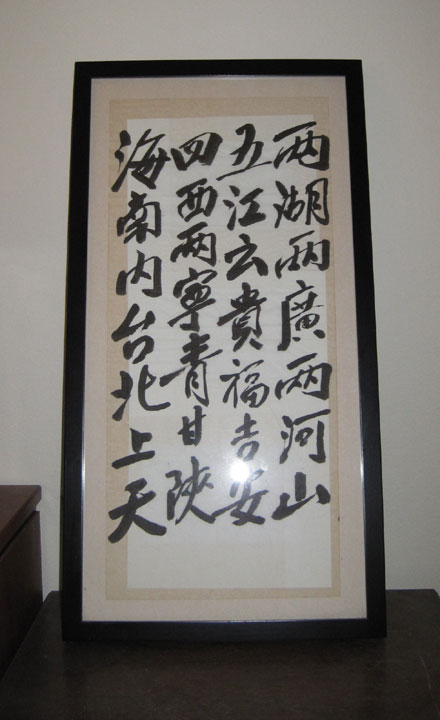 两湖两廣两河山
五江云貴福吉安
四西两寧青甘陝
海南内台北上天